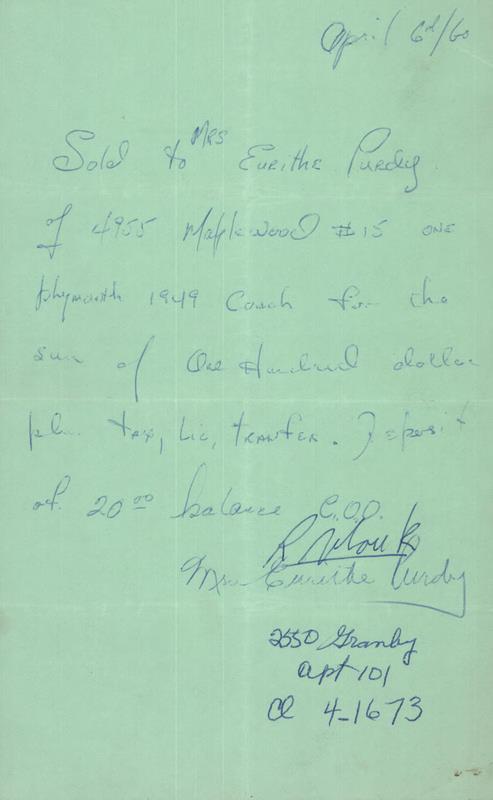 April 6th/60
Sold to Mrs Eurithe Purdy
of 4955 Maplewood #15 one
Plymouth 1949 Coach for the
sum of One Hundred dollar
plus tax, Lic, transfer. Deposit
of 20.00 balance C.O.D.
Mrs Eurithe Purdy
2550 Granby
apt 101
Cl 4-1673